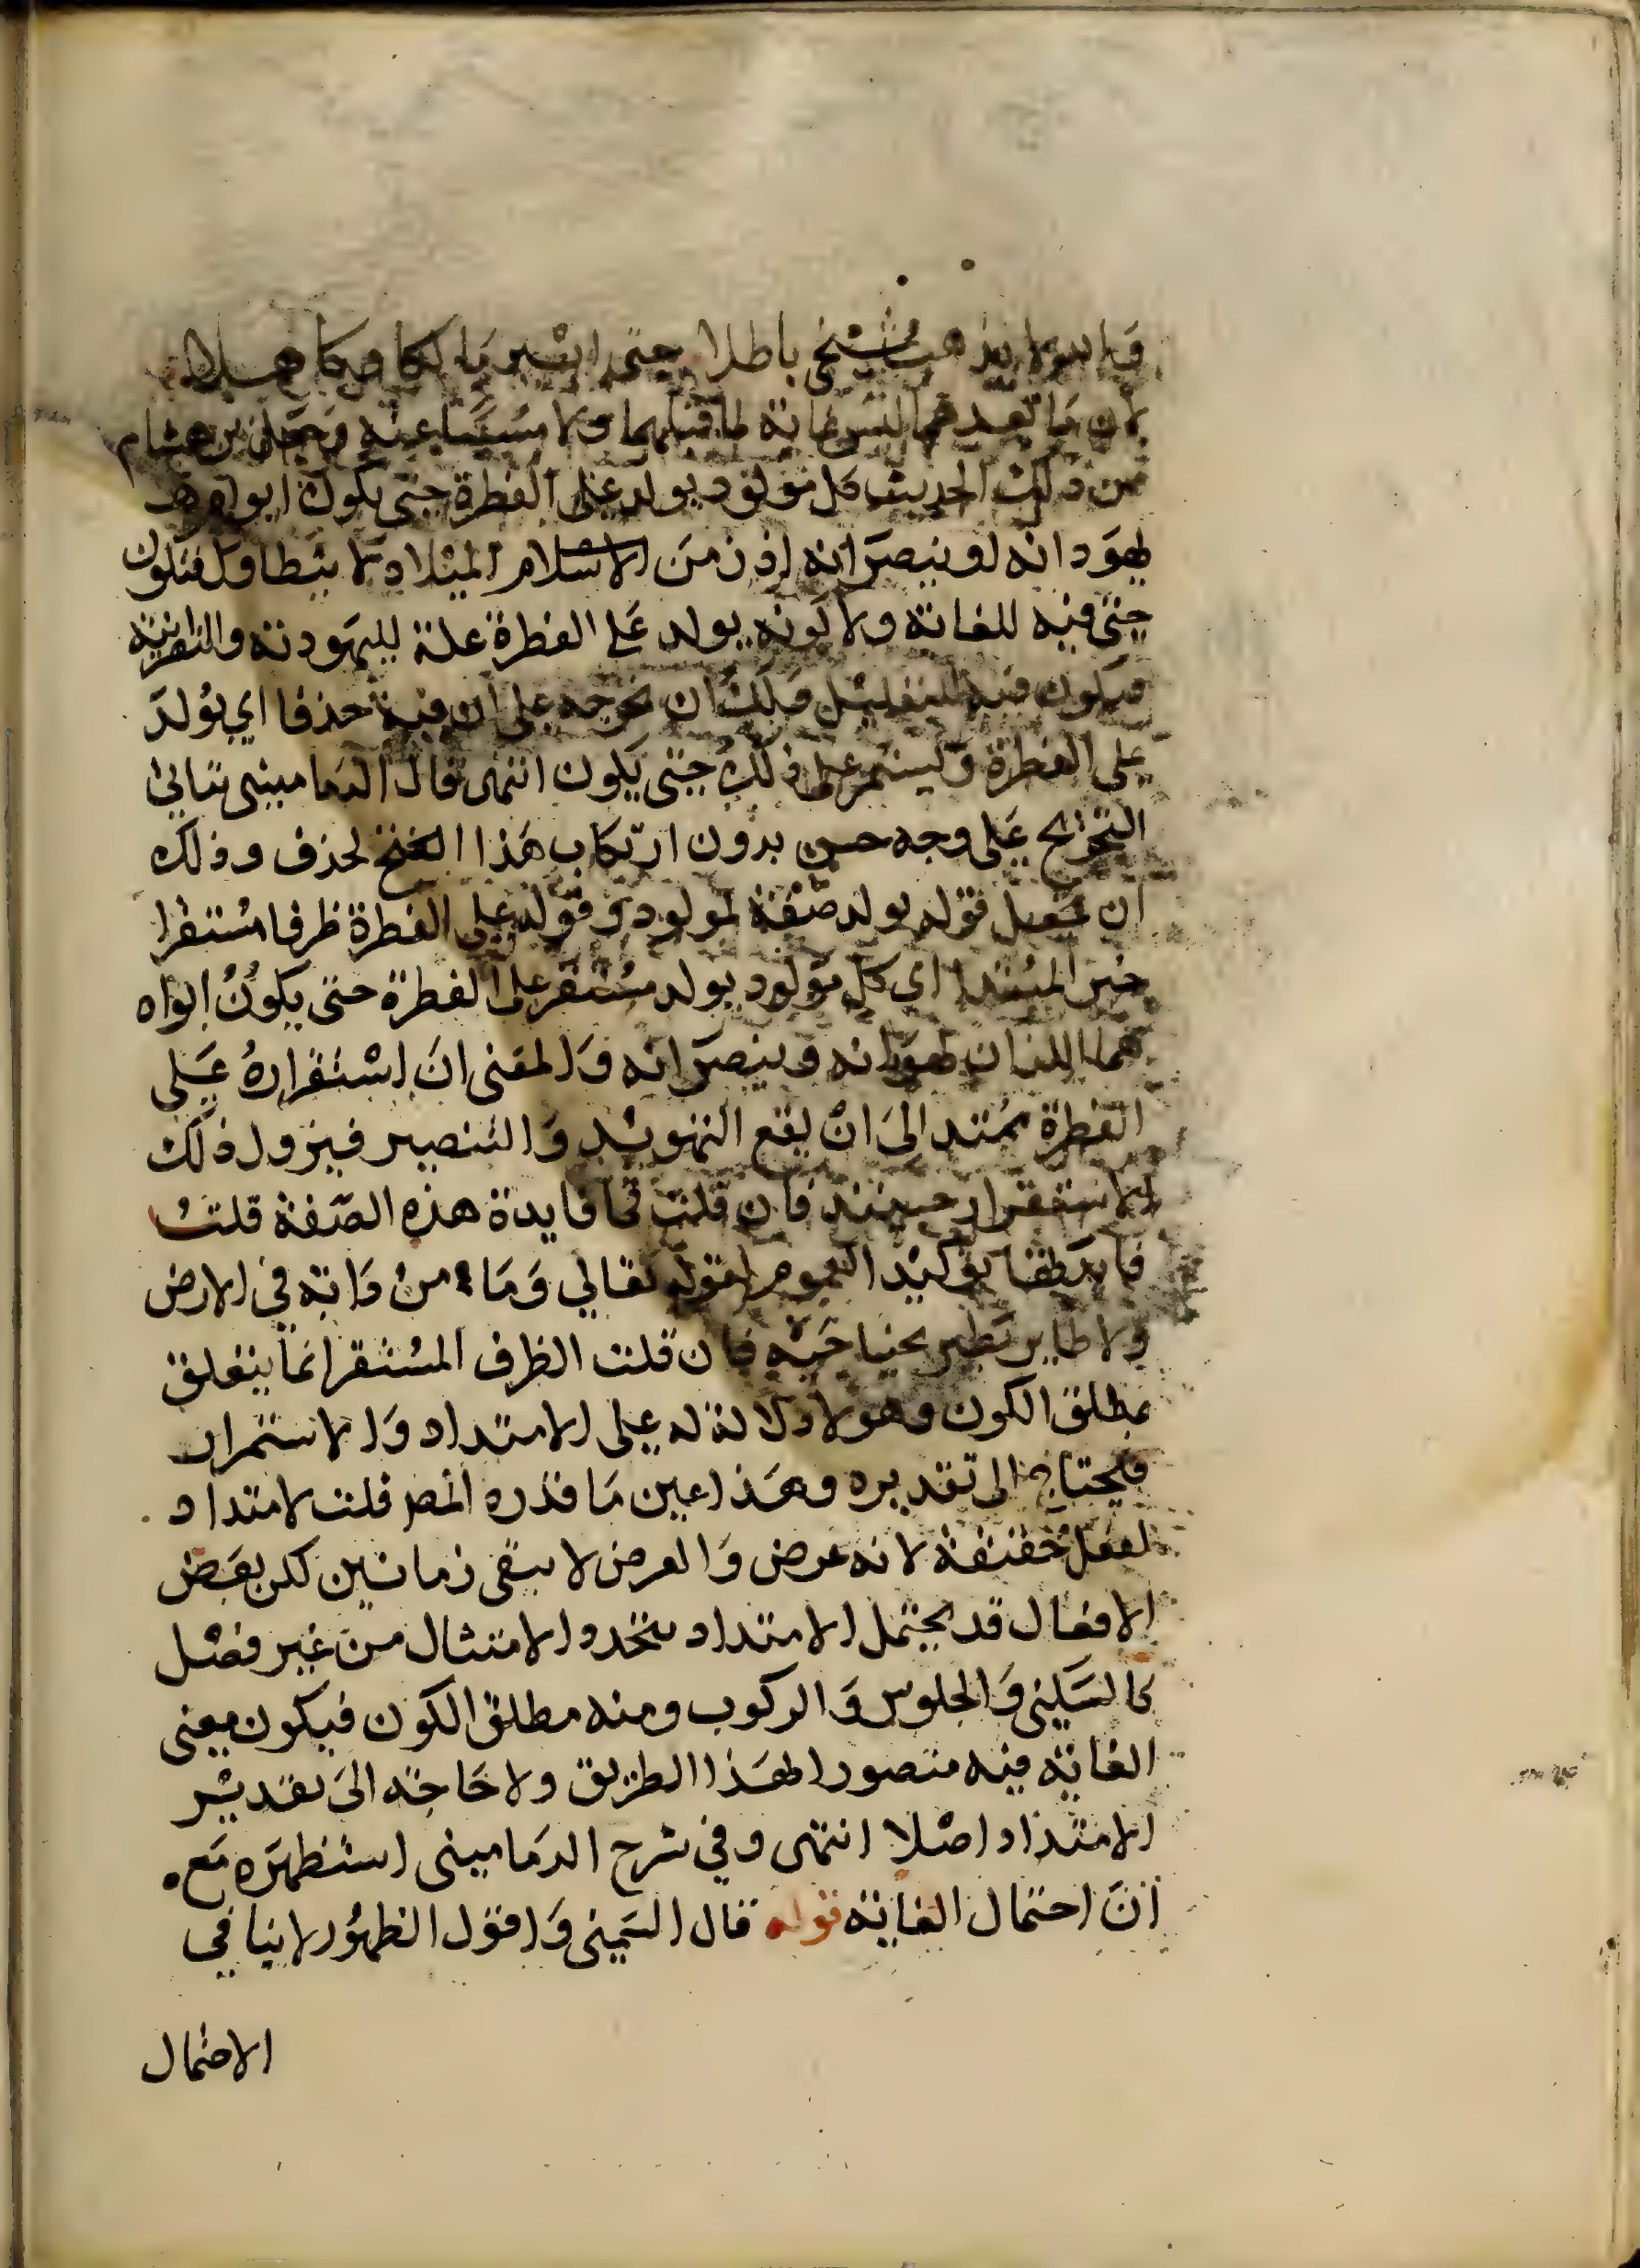 والله لا يذهب شيخي باطلا حتى ابير مالكا وكاهلا
لان ما بعدهما ليس غاية لما قبلهما ولا مسببا عنه وجعل بن هشام
من ذلك الحديث كل مولود يولد على الفطرة حتى يكون ابواه هما
يهودانه او ينصرانه اذ زمن الميلاد لا يتطاول فتكون
حتى فيه للغاية ولا كونه يولد على الفطرة علة لليهودية والنصرانية
فيكون فيه للتعليل ولك ان تخرجه على ان فيه حذفا اي يولد
على الفطرة ويستمر على ذلك حتى يكون انتهى قال الدماميني يتاتى
التخريج على وجه حسن بدون ارتكاب هذا الحذف وذلك
ان تجعل قوله يولد صفة لمولود وقوله على الفطرة ظرفا مستقرا
خبر المبتدا اي كل مولود يولد مستقر على الفطرة حتى يكون ابواه
هما اللذان يهودانه وينصرانه والمعنى ان استقراره على
الفطرة يمتد الى ان يقع التهويد والتنصير فيزول ذلك
الاستقرار حينئذ فان قلت فما فايدة هذه الصفة قلت
فايدتها توكيد العموم لقوله تعالي وما من دابة في الارض
ولا طاير يطير بجناحيه فان قلت الظرف المستقر انما يتعلق
بمطلق الكون وهو لا دلالة له على الامتداد والاستمرار
فيحتاج الى تقديره وهذا عين ما قدره المص قلت لا امتداد
لفعل حقيقة لانه عرض والعرض لا يبقى زمانين لكن بعض
الافعال قد يحتمل الامتداد بتجدد الامتثال من غير فصل
كالسكنى والجلوس والركوب ومنه مطلق الكون فيكون معنى
الغاية فيه متصورا لهذا الطريق ولا حاجة الى تقدير
الامتداد اصلا انتهى وفي شرح الدماميني استظهره مع
ان احتمال الغاية قوله قال الشمني واقول الظهور لا ينافي
الاحتمال